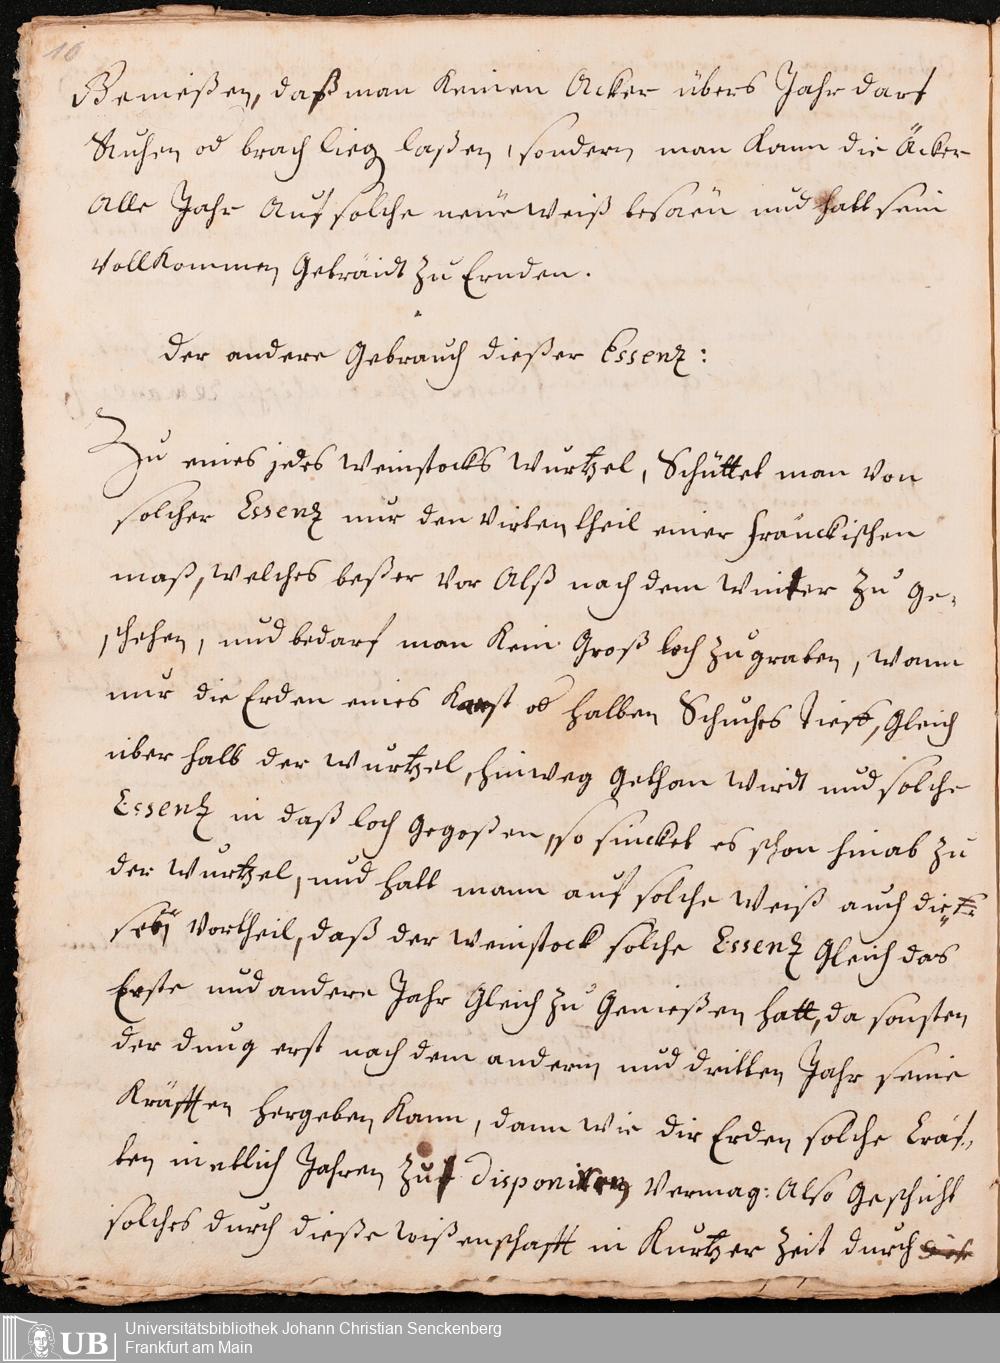 10
Bemießen, daß man keinen Acker übers Jahr darf
Ruhen od brach lieg laßen, sondern man kann die Äcker
Alle Jahr Auf solche neüe Weiß besäen und hatt sein
Vollkommen Geträidt zu Ernden.
der andere Gebrauch dießer Essenz:
Zu eines jedes Weinstocks Wurtzel, Schüttet man Von
solcher Essenz nur den Virten theil einer fränckischen
maß, welches beßer Vor Alß nach dem Winter zu ge-
schehen, und bedarf man kein Groß loch zu graben, Wann
nur die Erden eines Karst od halben Schuches Tieff, Gleich
über halb der Wurtzel, hinweg Gethan Wirdt und solche
Essenz in daß loch Gegoßen, so sincket es schon hinab zu
der Wurtzel, und hatt mann auf solche Weiß auch die
Vortheil, daß der Weinstock solche Essenz Gleich das
Erste und andere Jahr Gleich zu Genießen hatt, da sonsten
der dung erst nach dem andern und dritten Jahr seine
Kräfften hergeben kann, dann Wie die Erden solche Cräf-
ten in etlich Jahren zu disponiren Vermag: Also Geschicht
solches durch dieße Wißenschafft in Kurtzer Zeit durch
Universitätsbibliothek Johann Christian Senckenberg
UB Frankfurt am Main